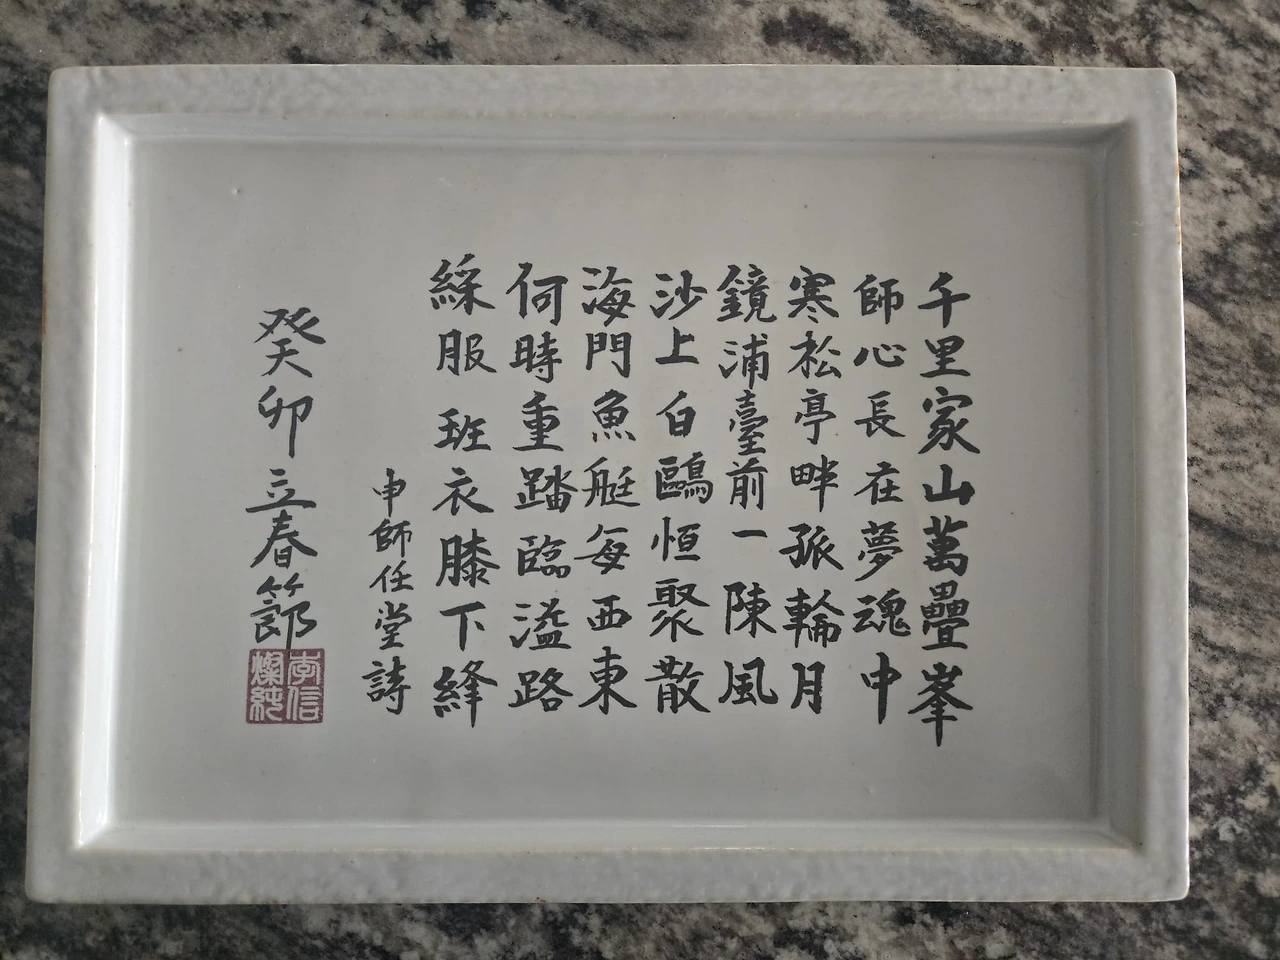 千里家山萬疊峯
師心長在夢魂中
寒松亭畔孤輪月
鏡浦臺前一陳風
沙上白鷗恒聚散
海門魚艇每西東
何時重踏臨溢路
綵服班衣膝下縫
申師任堂詩
癸卯立春節
李信
燦純